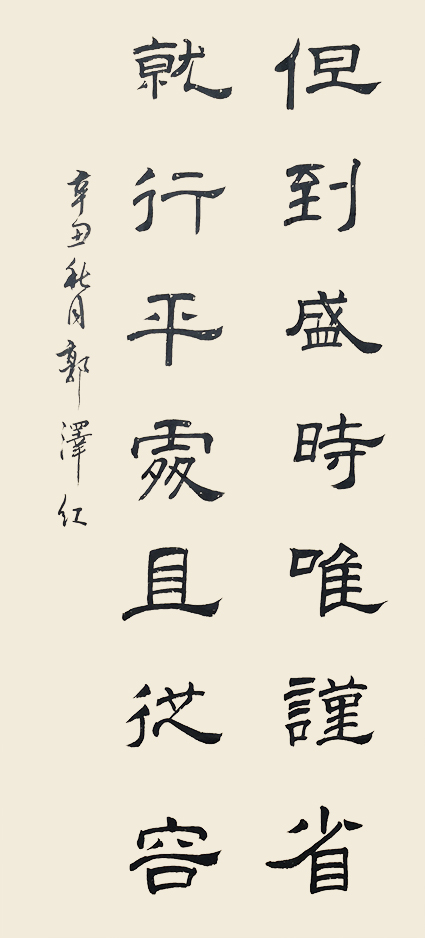 但到盛時唯謹省
就行平處且從容
辛丑秋月郭澤红